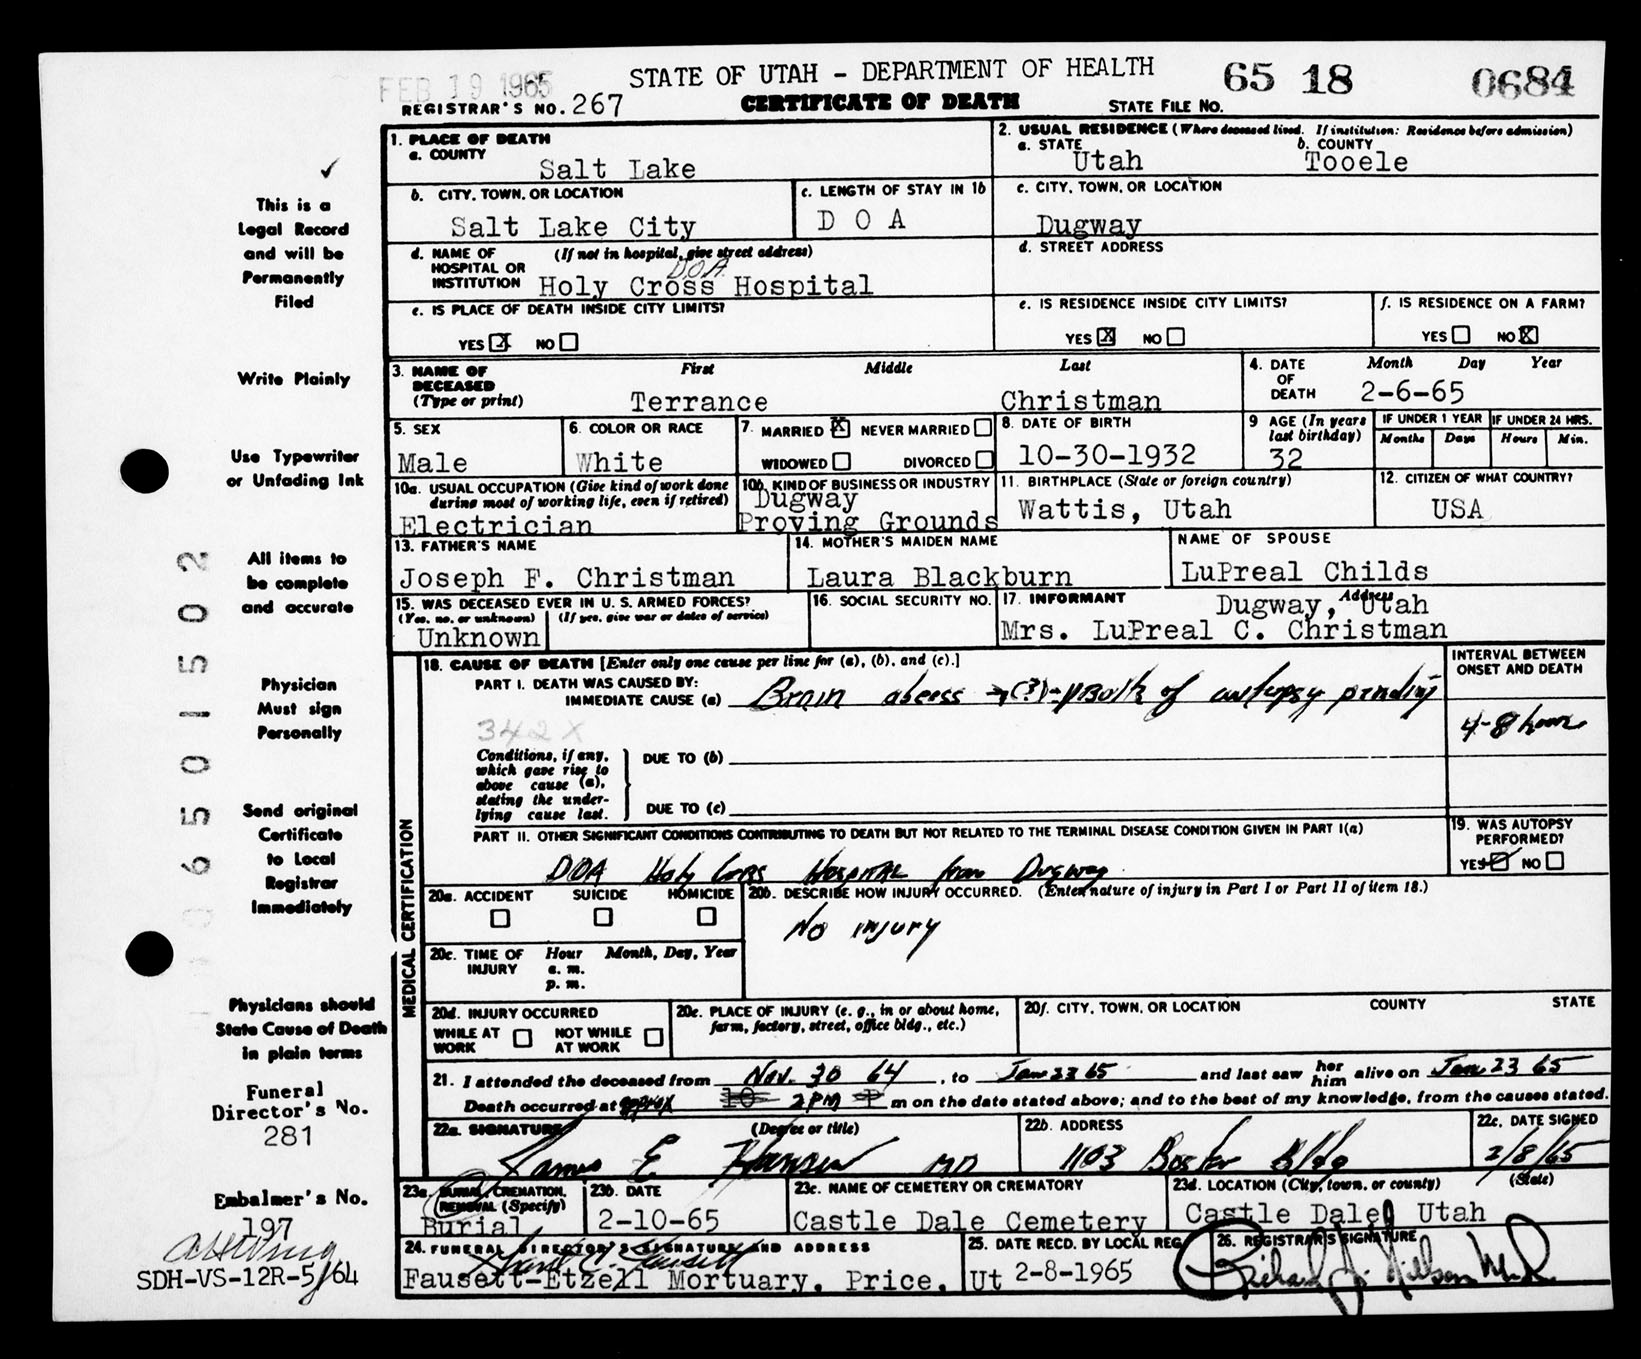 FEB 19 1965
STATE OF UTAH - DEPARTMENT OF HEALTH
65 18 0684
REGISTRAR'S NO. 267
CERTIFICATE OF DEATH
STATE FILE NO.
This is a
Legal Record
and will be
Permanently
Filed
Write Plainly
Use Typewriter
or Unfading Ink
All items to
be complete
and accurate
Physician
Must sign
Personally
Send original
Certificate
to Local
Registrar
Immediately
Physicians should
State Cause of Death
in plain terms
Funeral
Director's No.
281
Embalmer's No.
197
SDH-VS-12R-5/64
65015502
1. PLACE OF DEATH
a. COUNTY
Salt Lake
2. USUAL RESIDENCE (Where deceased lived. If institution: Residence before admission)
a. STATE
Utah
b. COUNTY
Tooele
b. CITY, TOWN, OR LOCATION
Salt Lake City
c. LENGTH OF STAY IN 1b
D O A
c. CITY, TOWN, OR LOCATION
Dugway
d. NAME OF HOSPITAL OR INSTITUTION
(If not in hospital, give street address)
D.O.A.
Holy Cross Hospital
d. STREET ADDRESS
e. IS PLACE OF DEATH INSIDE CITY LIMITS?
YES X NO
e. IS RESIDENCE INSIDE CITY LIMITS?
YES X NO
f. IS RESIDENCE ON A FARM?
YES NO X
3. NAME OF DECEASED
(Type or print)
First Middle Last
Terrance Christman
4. DATE OF DEATH
Month Day Year
2-6-65
5. SEX
Male
6. COLOR OR RACE
White
7. MARRIED X NEVER MARRIED
WIDOWED DIVORCED
8. DATE OF BIRTH
10-30-1932
9 AGE (In years last birthday)
32
IF UNDER 1 YEAR
Months Days
IF UNDER 24 HRS.
Hours Min.
10a. USUAL OCCUPATION (Give kind of work done
during most of working life, even if retired)
Electrician
10b. KIND OF BUSINESS OR INDUSTRY
Dugway
Proving Grounds
11. BIRTHPLACE (State or foreign country)
Wattis, Utah
12. CITIZEN OF WHAT COUNTRY?
USA
13. FATHER'S NAME
Joseph F. Christman
14. MOTHER'S MAIDEN NAME
Laura Blackburn
NAME OF SPOUSE
LuPreal Childs
15. WAS DECEASED EVER IN U. S. ARMED FORCES?
(Yes, no, or unknown) (If yes, give war or dates of service)
Unknown
16. SOCIAL SECURITY NO.
17. INFORMANT Address
Dugway, Utah
Mrs. LuPreal C. Christman
MEDICAL CERTIFICATION
18. CAUSE OF DEATH [Enter only one cause per line for (a), (b), and (c).]
INTERVAL BETWEEN
ONSET AND DEATH
PART I. DEATH WAS CAUSED BY:
IMMEDIATE CAUSE (a) Brain abcess (?) of autopsy pending
4-8 hours
342X
Conditions, if any,
which gave rise to
above cause (a),
stating the under-
lying cause last.
DUE TO (b)
DUE TO (c)
PART II. OTHER SIGNIFICANT CONDITIONS CONTRIBUTING TO DEATH BUT NOT RELATED TO THE TERMINAL DISEASE CONDITION GIVEN IN PART I(a)
DOA Holy Cross Hospital from Dugway
19. WAS AUTOPSY
PERFORMED?
YES NO
20a. ACCIDENT SUICIDE HOMICIDE
20b. DESCRIBE HOW INJURY OCCURRED. (Enter nature of injury in Part I or Part II of item 18.)
No injury
20c. TIME OF INJURY
Hour Month, Day, Year
a. m.
p. m.
20d. INJURY OCCURRED
WHILE AT WORK
NOT WHILE AT WORK
20e. PLACE OF INJURY (e. g., in or about home,
farm, factory, street, office bldg., etc.)
20f. CITY, TOWN, OR LOCATION COUNTY STATE
21. I attended the deceased from Nov. 30 64, to Jan 23 65 and last saw her him alive on Jan 23 65
Death occurred at approx 2 PM m on the date stated above; and to the best of my knowledge, from the causes stated.
22a. SIGNATURE (Degree or title)
James E Hansen MD
22b. ADDRESS
1103 Boston Bldg
22c. DATE SIGNED
2/8/65
23a. BURIAL, CREMATION,
REMOVAL (Specify)
Burial
23b. DATE
2-10-65
23c. NAME OF CEMETERY OR CREMATORY
Castle Dale Cemetery
23d. LOCATION (City, town, or county) (State)
Castle Dale, Utah
24. FUNERAL DIRECTOR'S SIGNATURE AND ADDRESS
Fausett-Etzell Mortuary, Price, Ut
25. DATE RECD. BY LOCAL REG.
2-8-1965
26. REGISTRAR'S SIGNATURE